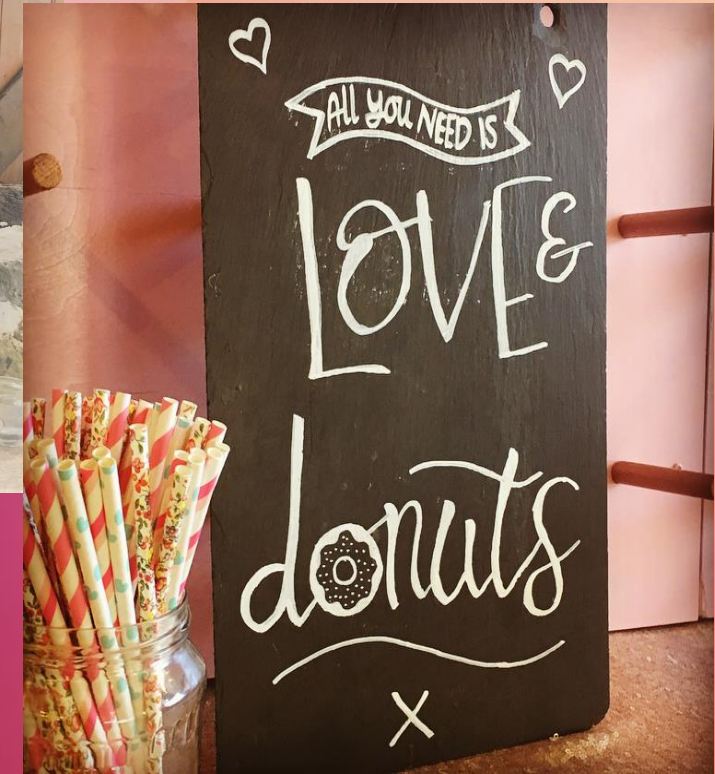 ALL YOU NEED IS
LOVE &
donuts
X